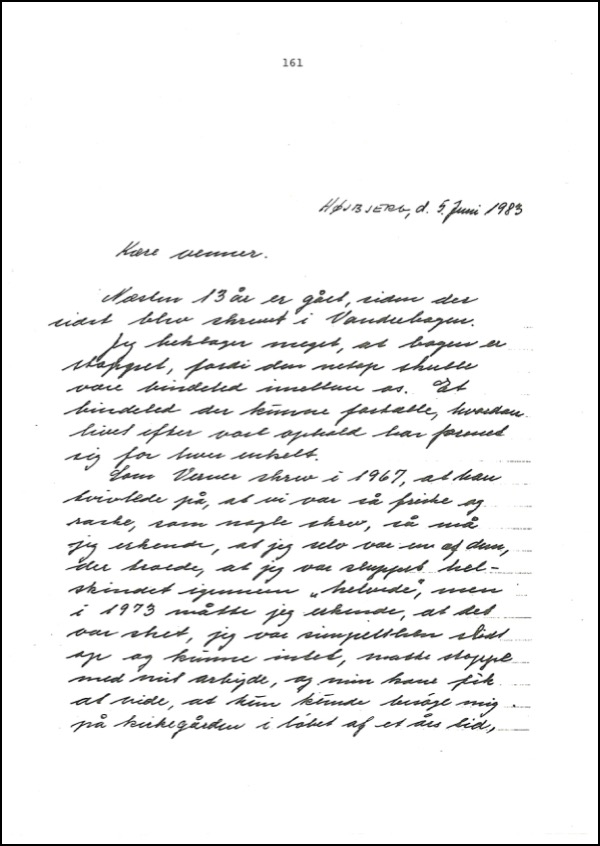 161
HØJBJERG, d. 5. Juni 1983
Kære venner.
Næsten 13 år er gået, siden der
sidst blev skrevet i Vandrebogen.
Jeg beklager meget, at bogen er
stoppet, fordi den netop skulle
være bindeled imellem os. Et
bindeled der kunne fortælle, hvordan
livet efter vort ophold har formet
sig for hver enkelt.
Som Verner skrev i 1967, at han
tvivlede på, at vi var så friske og
raske, som nogle skrev, så må
jeg erkende, at jeg selv var en af dem,
der troede, at jeg var sluppet hel-
skindet igennem "helvede", men
i 1973 måtte jeg erkende, at det
var sket, jeg var simpelthen slidt
op og kunne intet, måtte stoppe
med mit arbejde, og min kone fik
at vide, at hun kunde besøge mig
på kirkegården i løbet af et års tid,